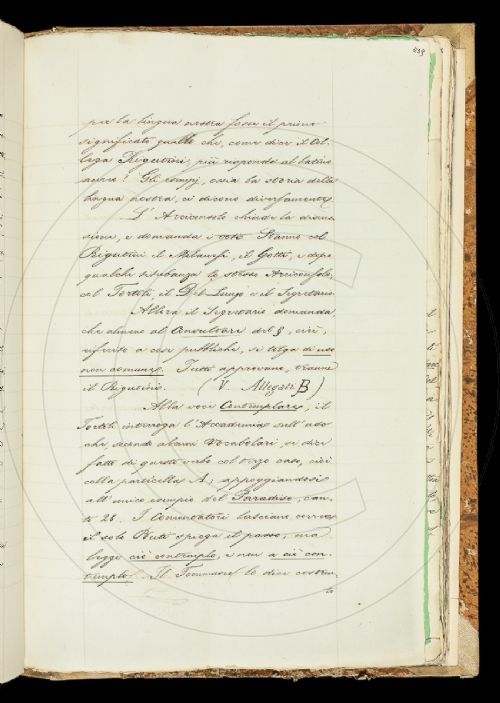 439
per la lingua nostra fosse il primo
significato quello che, come dice il Col-
lega Rigutini, più risponde al latino
Gli esempj, ossia la storia della
lingua nostra, ci dicono diversamente
L'Arciconsolo chiude la discus-
sione, e domanda i voti. Stanno col
Rigutini il Milanesi, il Gotti, e dopo
qualche titubanza lo stesso Arciconsolo,
col Tortoli, il Del Lungo e il Segretario
Allora il Segretario domanda
che almeno al Consultare del §, cioè,
riferito a cose pubbliche, si tolga di uso
non comune. Tutti approvano, tranne
il Rigutini. (V. Allegati B)
Alla voce Contemplare, il
Tortoli interroga l'Accademia sull'uso
che secondo alcuni Vocabolari, si dice
fatto di questo verbo col terzo caso, cioè
colla particella A; appoggiandosi
all'unico esempio del Paradiso, can-
to 28. I Comentatori lasciano correre
il solo Buti spiega il passo, ma
legge ciò contemplo, e non a ciò con-
templo. Il Tommaseo lo dice costru-
to